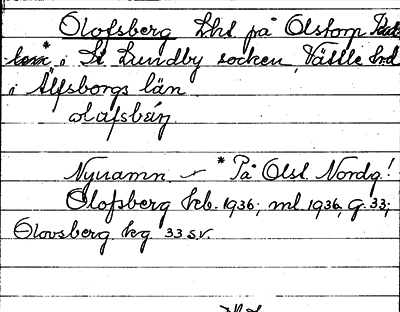 Olofsberg Lht på Olstorp
i St. Lundby socken, Vättle hrd
i Älfsborgs län.
olafsbärj
Nynamn. – * På Olst. Nordg!
Olofsberg kb. 1936; ml. 1936, g. 33;
Olovsberg kg 33 s.v.